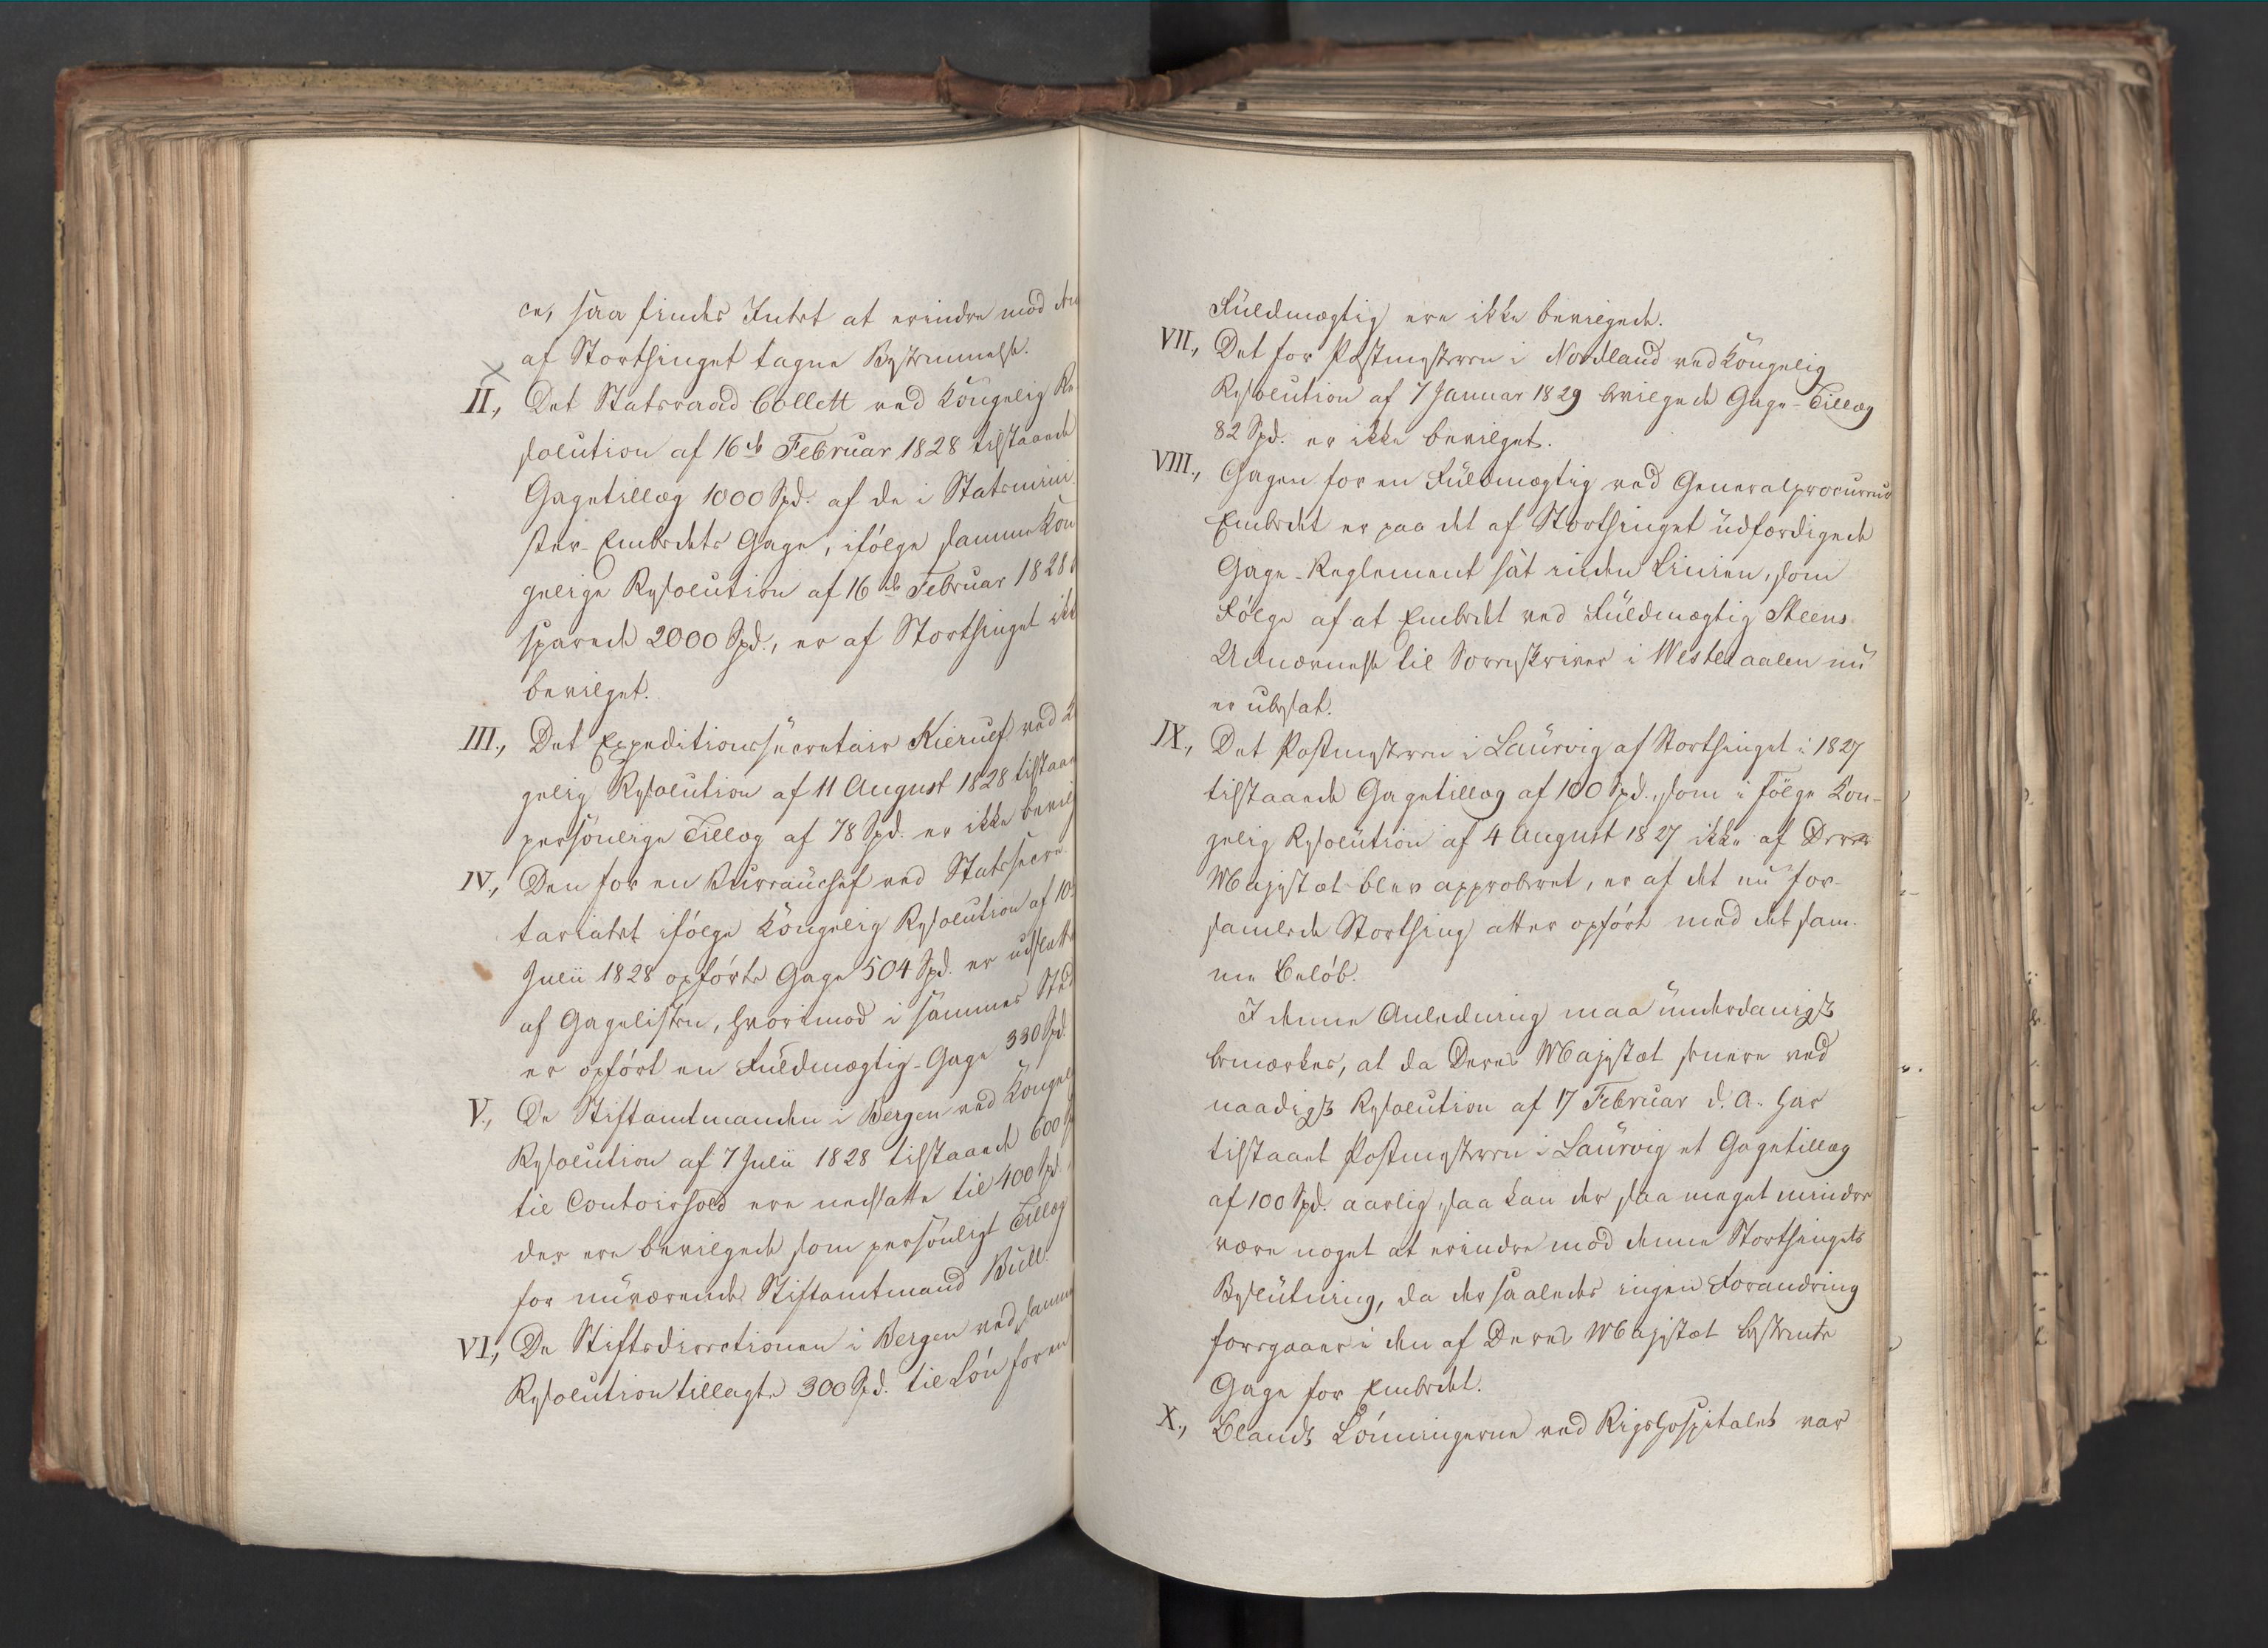 ce, saa findes Intet at erindre mod den
af Storthinget tagne Bestemmelse.
II., Det Statsraad Collett ved Kongelig Re-
solution af 16de Februar 1828 tilstaaede
Gagetillæg 1000 Spd. af de i Statsmini-
ster-Embedets Gage, ifölge samme Kon-
gelige Resolution af 16de Februar 1828
sparede 2000 Spd., er af Storthinget ikke
bevilget.
III., Det Expeditionssecretair Kierulf ved
gelig Resolution af 11 August 1828 tilstaaede
personlige Tillæg af 78 Spd. er ikke bevilg
IV., Den for en Bureauchef ved Statssecre-
tariatet ifölge Kongelig Resolution af 10
Julii 1828 opförte Gage 504 Spd. er udslettet
af Gagelisten, hvorimod i sammes Sted
er opfört en Fuldmægtig-Gage 330 Spd.
V., De Stiftamtmanden i Bergen ved Kongel
Resolution af 7 Julii 1828 tilstaaede 600
til Contoirhold ere nedsatte til 400 Spd.
der ere bevilgede som personligt Tillæg
for nuværende Stiftamtmand Bull.
VI., De Stiftsdirectionen i Bergen ved samme
Resolution tillagte 300 Spd. til Lön for en
Fuldmægtig ere ikke bevilgede.
VII., Det for Postmesteren i Nordland ved Kongelig
Resolution af 7 Januar 1829 bevilgede Gage-Tillæg
82 Spd. er ikke bevilget.
VIII., Gagen for en Fuldmægtig ved Generalprocureur
Embedet er paa det af Storthinget udfærdigede
Gage-Reglement sat inden Linien, som
Fölge af at Embedet ved Fuldmægtig Steens
Udnævnelse til Sorenskriver i Westeraalen nu
er ubesat.
IX., Det Postmesteren i Laurvig af Storthinget i 1827
tilstaaede Gagetillæg af 100 Spd., som i Fölge Kon-
gelig Resolution af 4 August 1827 ikke af Deres
Majestæt blev approberet, er af det nu for-
samlede Storthing atter opfört med det sam-
me Belöb.
I denne Anledning maa underdanigst
bemærkes, at da Deres Majestæt senere ved
naadigst Resolution af 17 Februar d. A. har
tilstaaet Postmesteren i Laurvig et Gagetillæg
af 100 Spd. aarlig, saa kan der saa meget mindre
være noget at erindre mod denne Storthingets
Beslutning, da der saaledes ingen Forandring
foregaaer i den af Deres Majestæt bestemte
Gage for Embedet.
X., Blandt Lönningerne ved Rigshospitalet var